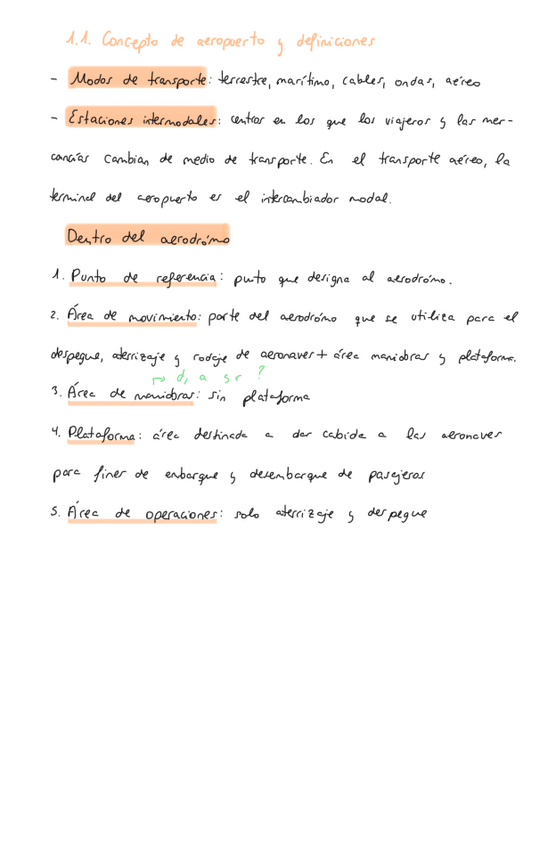 1.1. Concepto de aeropuerto y definiciones
- Modos de transporte: terrestre, marítimo, cables, ondas, aéreo
- Estaciones intermodales: centros en los que los viajeros y las mer-
cancías cambian de medio de transporte. En el transporte aéreo, la
terminal del aeropuerto es el intercambiador modal.
Dentro del aerodrómo
1. Punto de referencia: punto que designa al aerodrómo.
2. Área de movimiento: parte del aerodrómo que se utiliza para el
despegue, aterrizaje y rodaje de aeronaves + área maniobras y plataforma.
↳ d, a y r ?
3. Área de maniobras: sin plataforma
4. Plataforma: área destinada a dar cabida a las aeronaves
para fines de enbarque y desembarque de pasajeros
5. Área de operaciones: solo aterrizaje y despegue